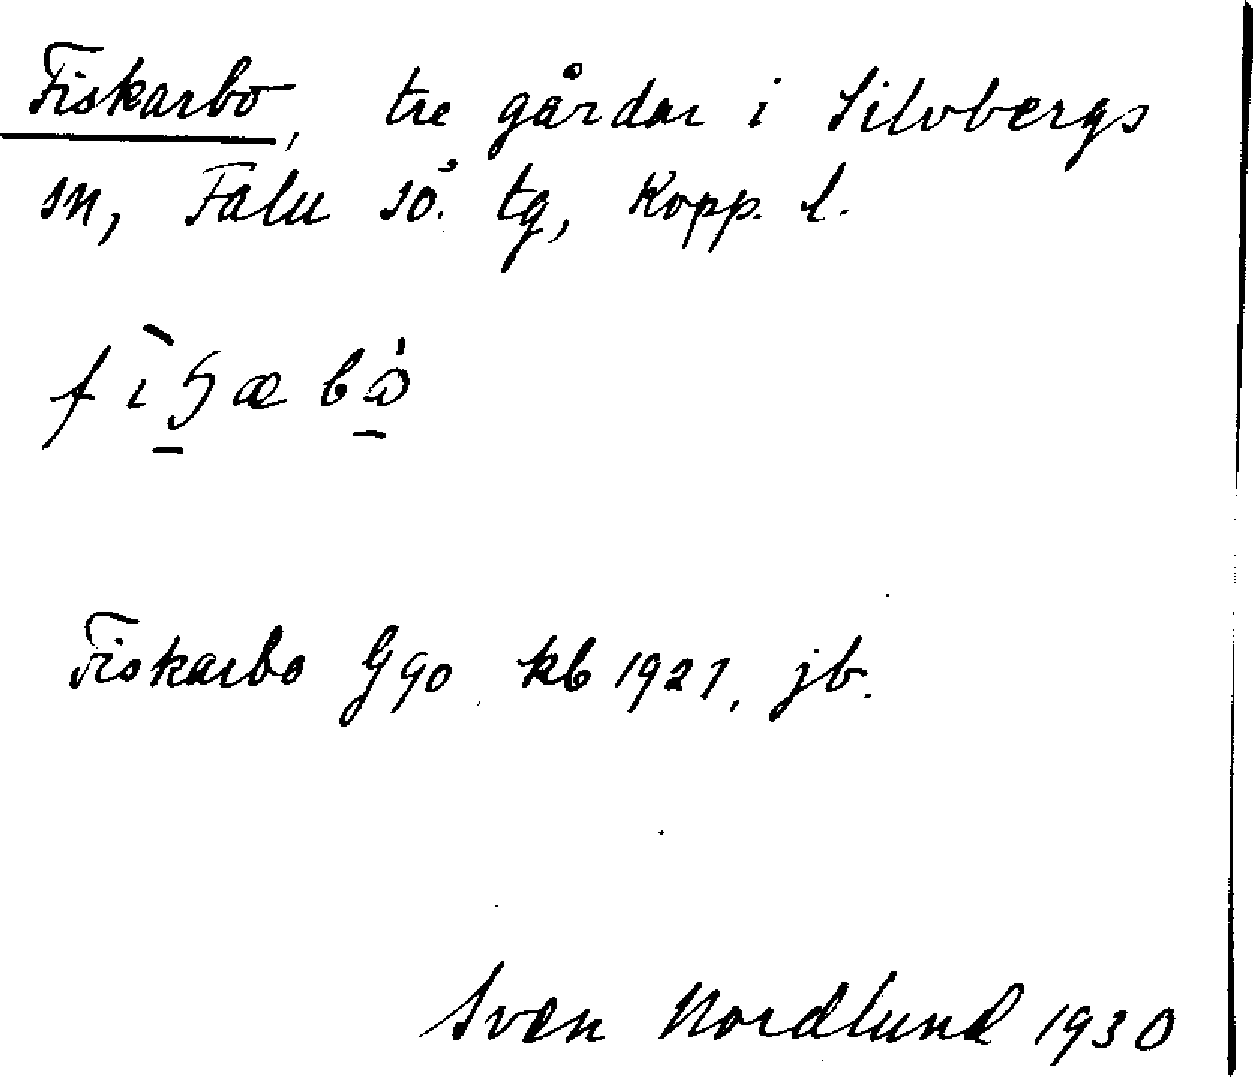 Fiskarbo, tre gårdar i Silvbergs
sn, Falu sö. tg, Kopp. l.
Fiskarbo G 90 kb 1921, jb.
Sven Nordlund 1930